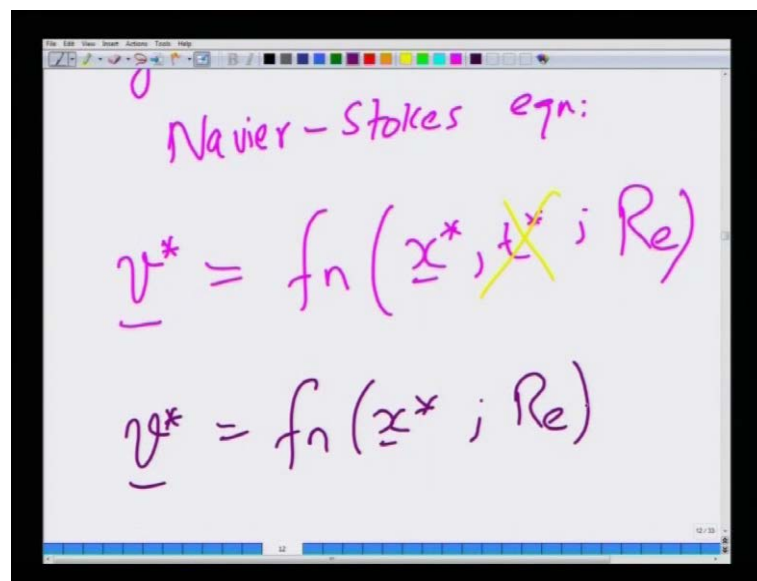 File Edit View Insert Actions Tools Help
Navier-Stokes eqn:
v* = fn(x*, t*; Re)
v* = fn(x*; Re)
12/33
12